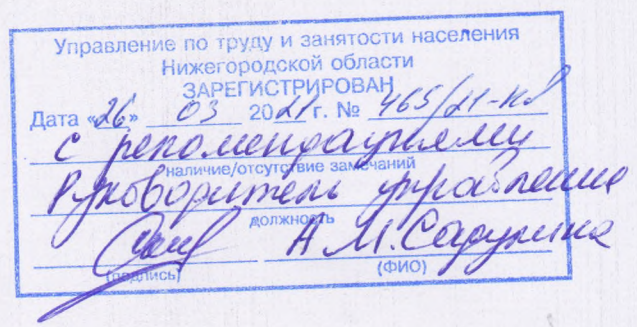 Управление по труду и занятости населения
Нижегородской области
ЗАРЕГИСТРИРОВАН
Дата «26» 03 2021 г. № 465/21-КД
с рекомендациями
наличие/отсутствие замечаний
Руководитель управления
должность
А.М.
(подпись) (ФИО)